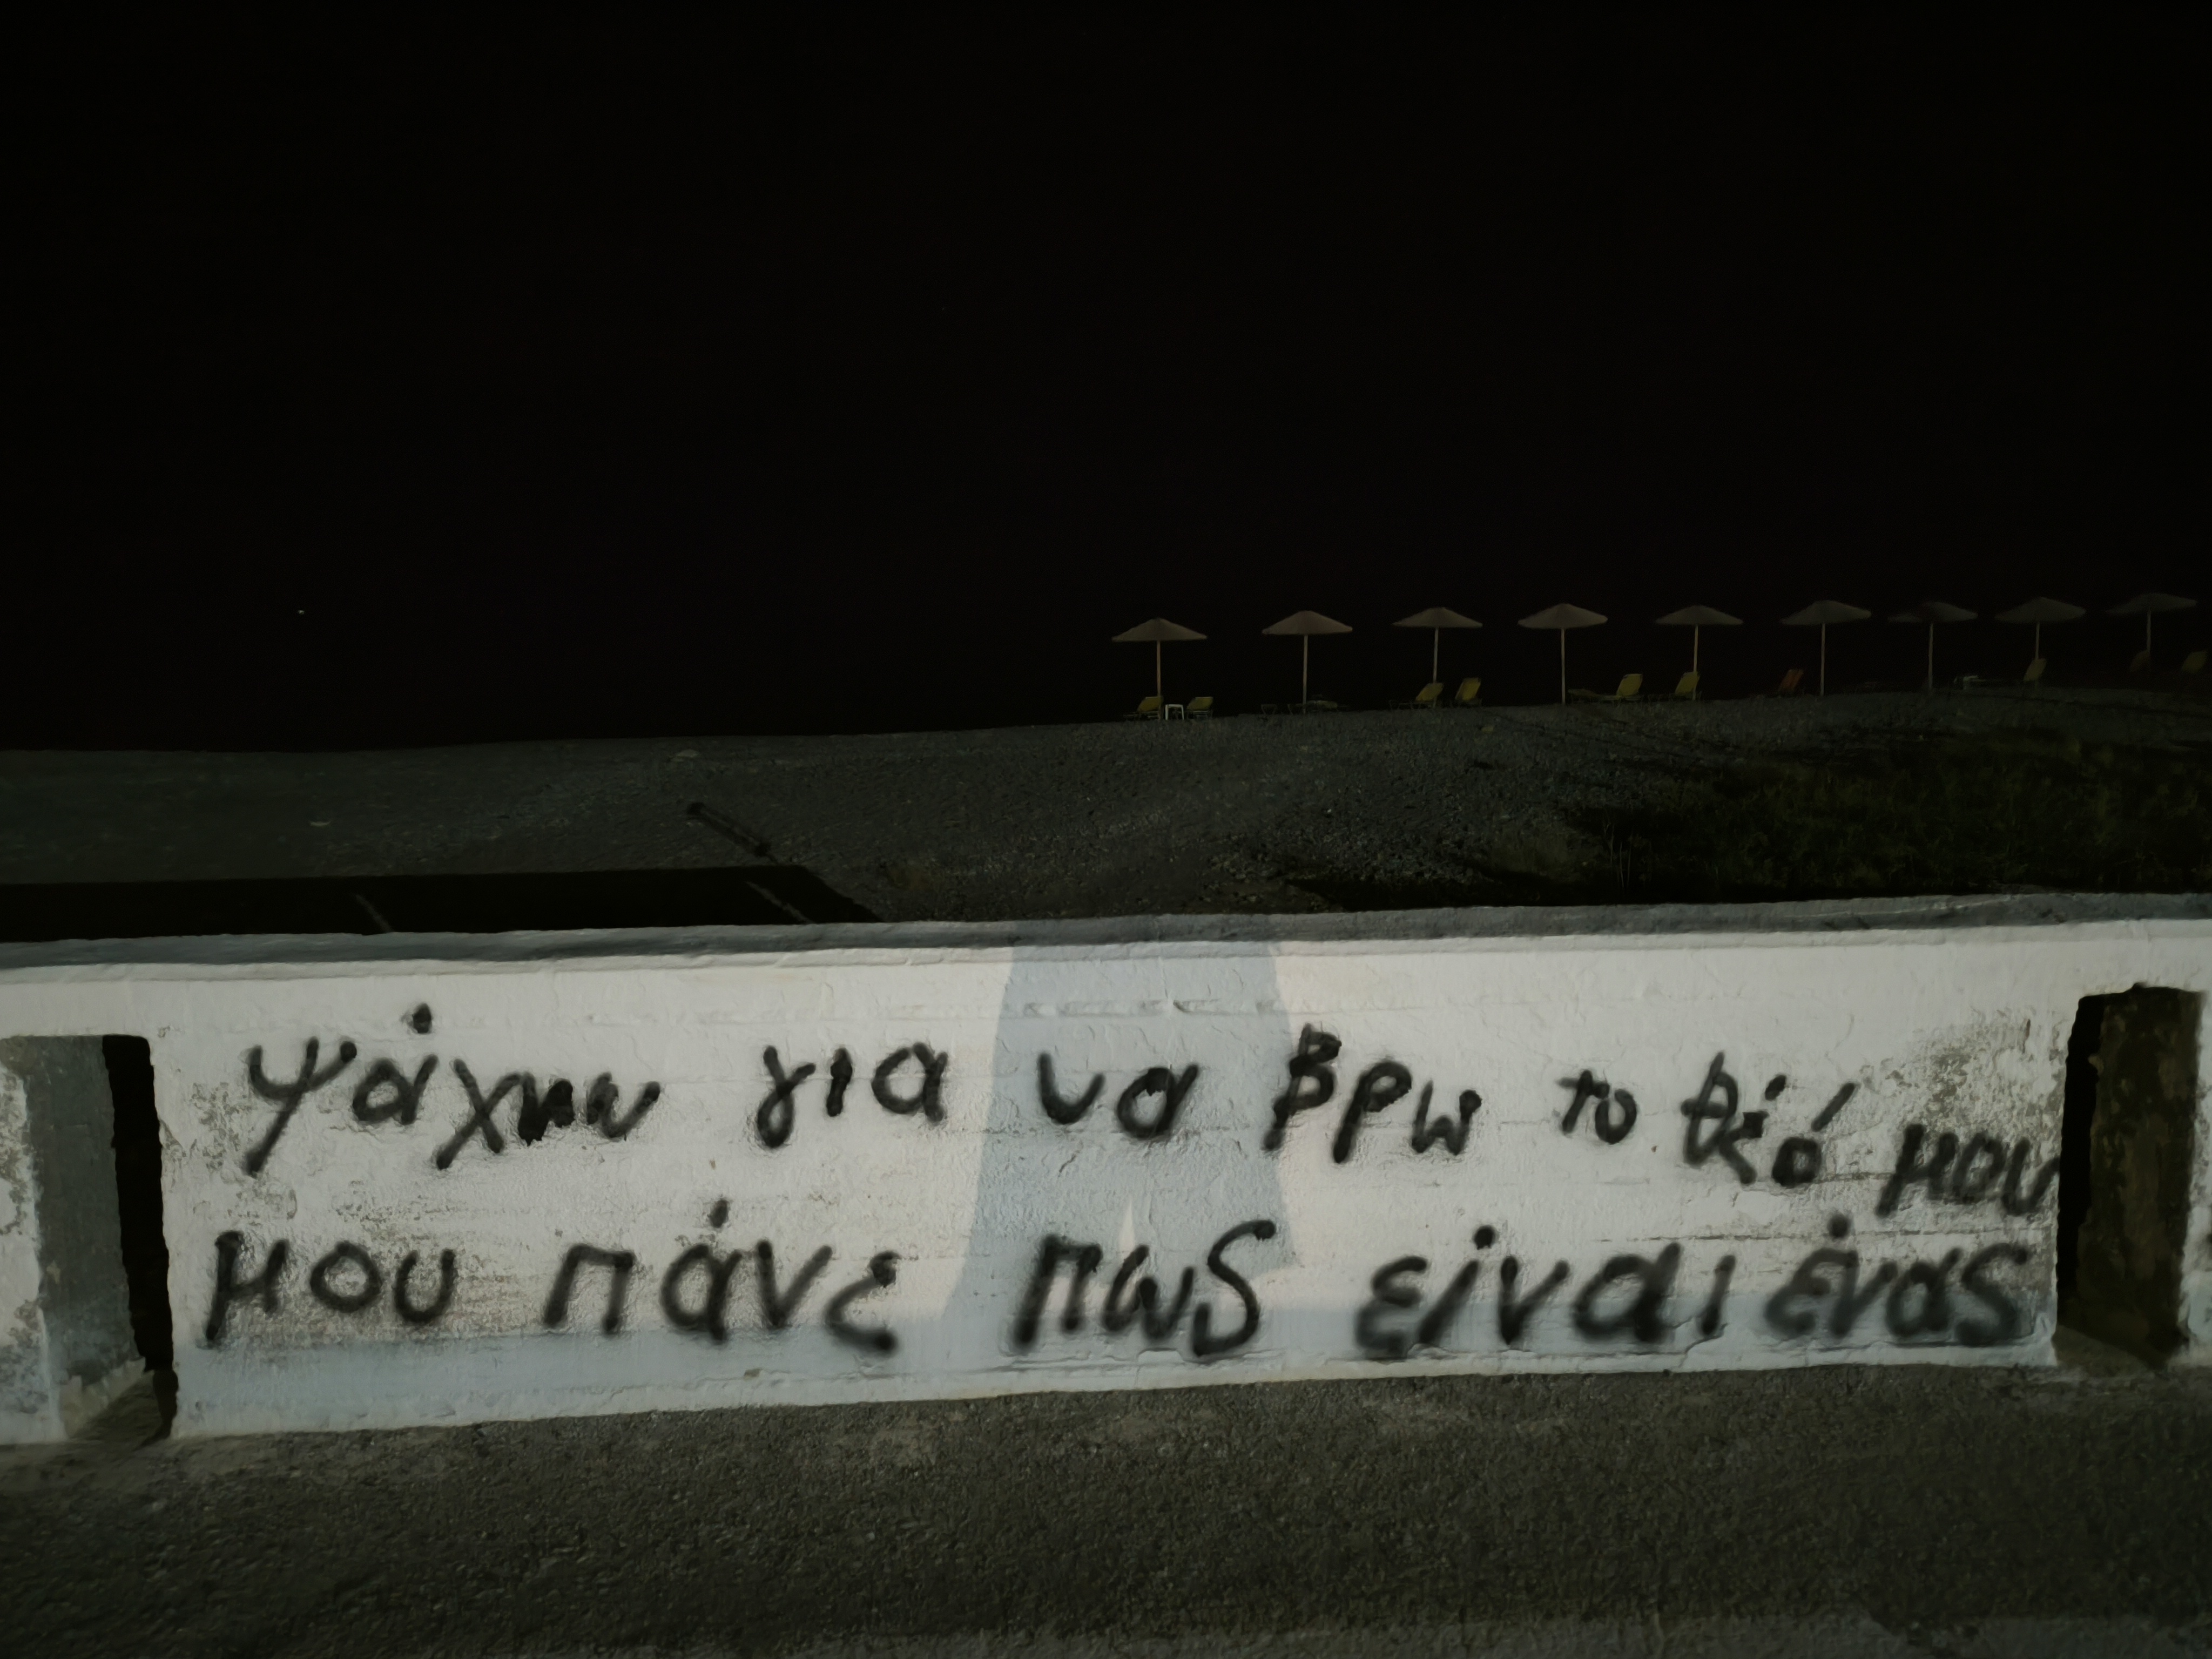 ψάχνω για να βρω το θεό μου
μου πάνε πως είναι ένας